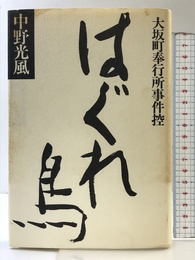 大坂町奉行所事件控
はぐれ鳥
中野光風